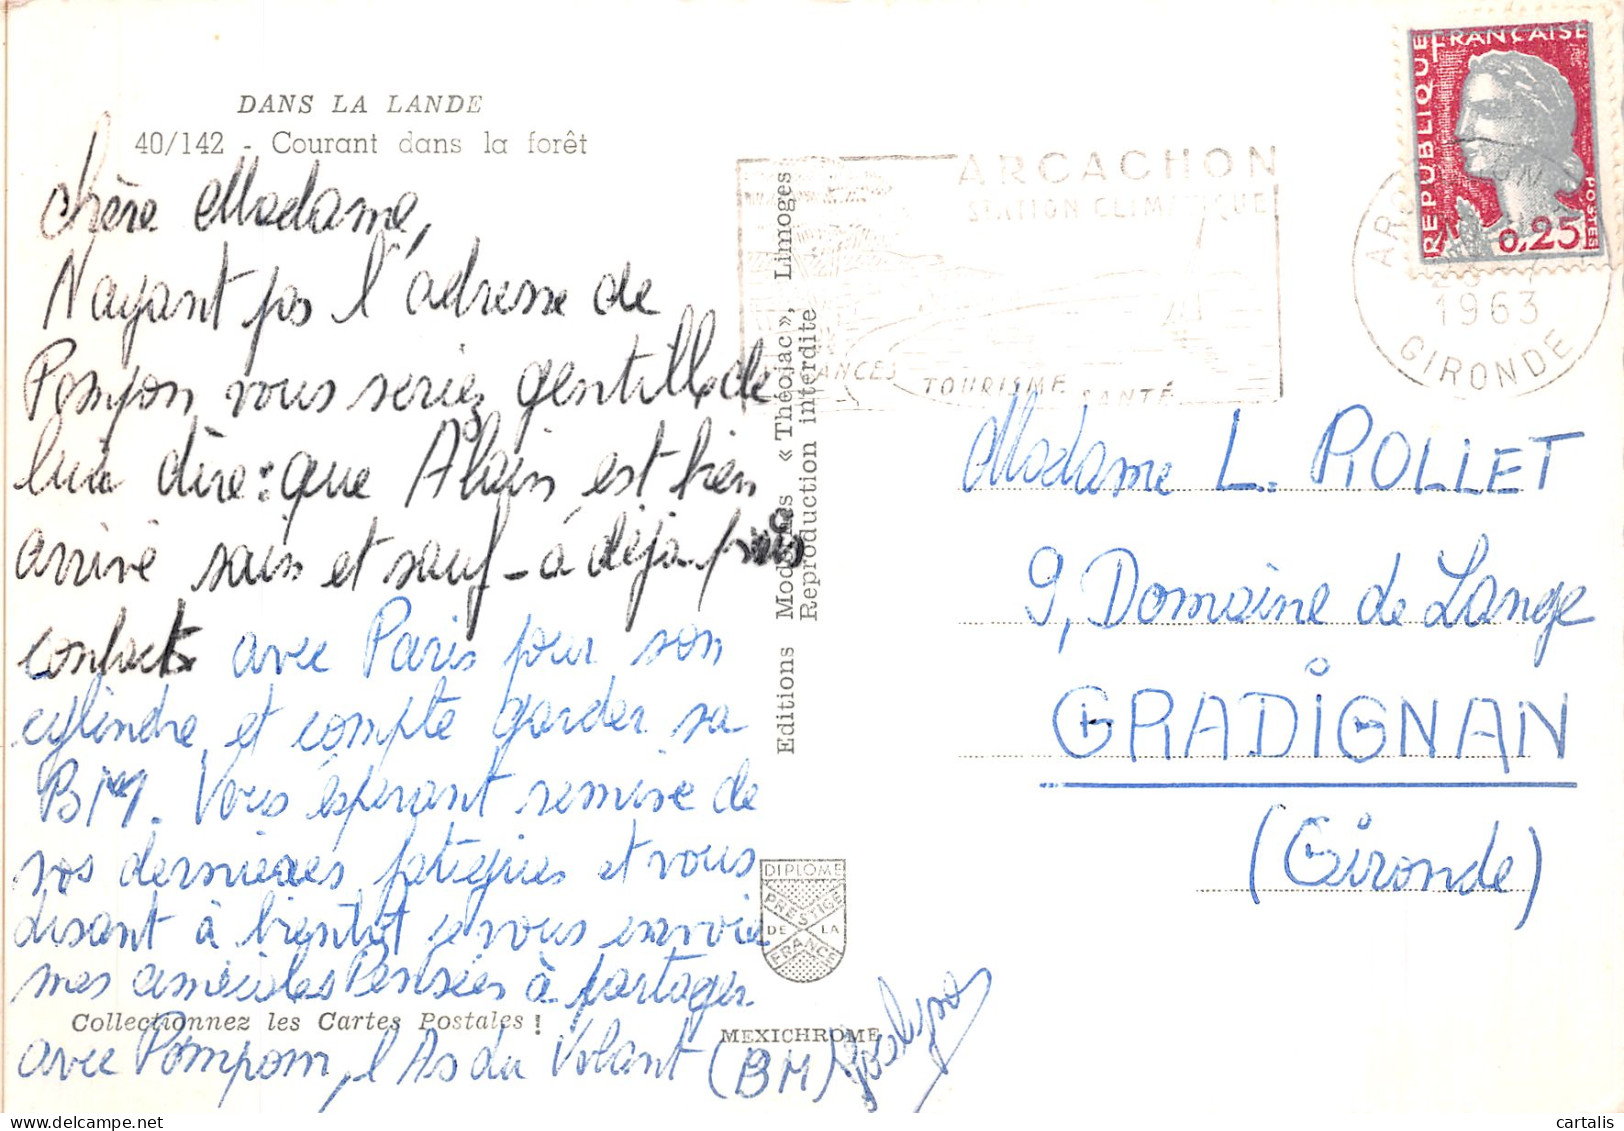 DANS LA LANDE
40/142 - Courant dans la forêt
chère Madame,
N'ayant pas l'adresse de
Pompon vous seriez gentille de
lui dire: que Alain est bien
arrivé sain et sauf - a déjà pris
contact avec Paris pour son
cylindre, et compte garder sa
BM. Vous espérant remise de
vos dernières fatigues et vous
disant à bientôt je vous envoie
mes amicales Pensées à partager
avec Pompom, l'As du Volant (BM)
Collectionnez les Cartes Postales !
Editions Modernes « Théojac », Limoges
Reproduction interdite
DIPLOME
PRESTIGE
DE LA
FRANCE
MEXICHROME
ARCACHON
STATION CLIMATIQUE
VACANCES TOURISME SANTÉ
REPUBLIQUE FRANÇAISE
POSTES
0,25
ARCACHON
1963
GIRONDE
Madame L. ROLLET
9, Domaine de Lange
GRADIGNAN
(Gironde)
cartalis